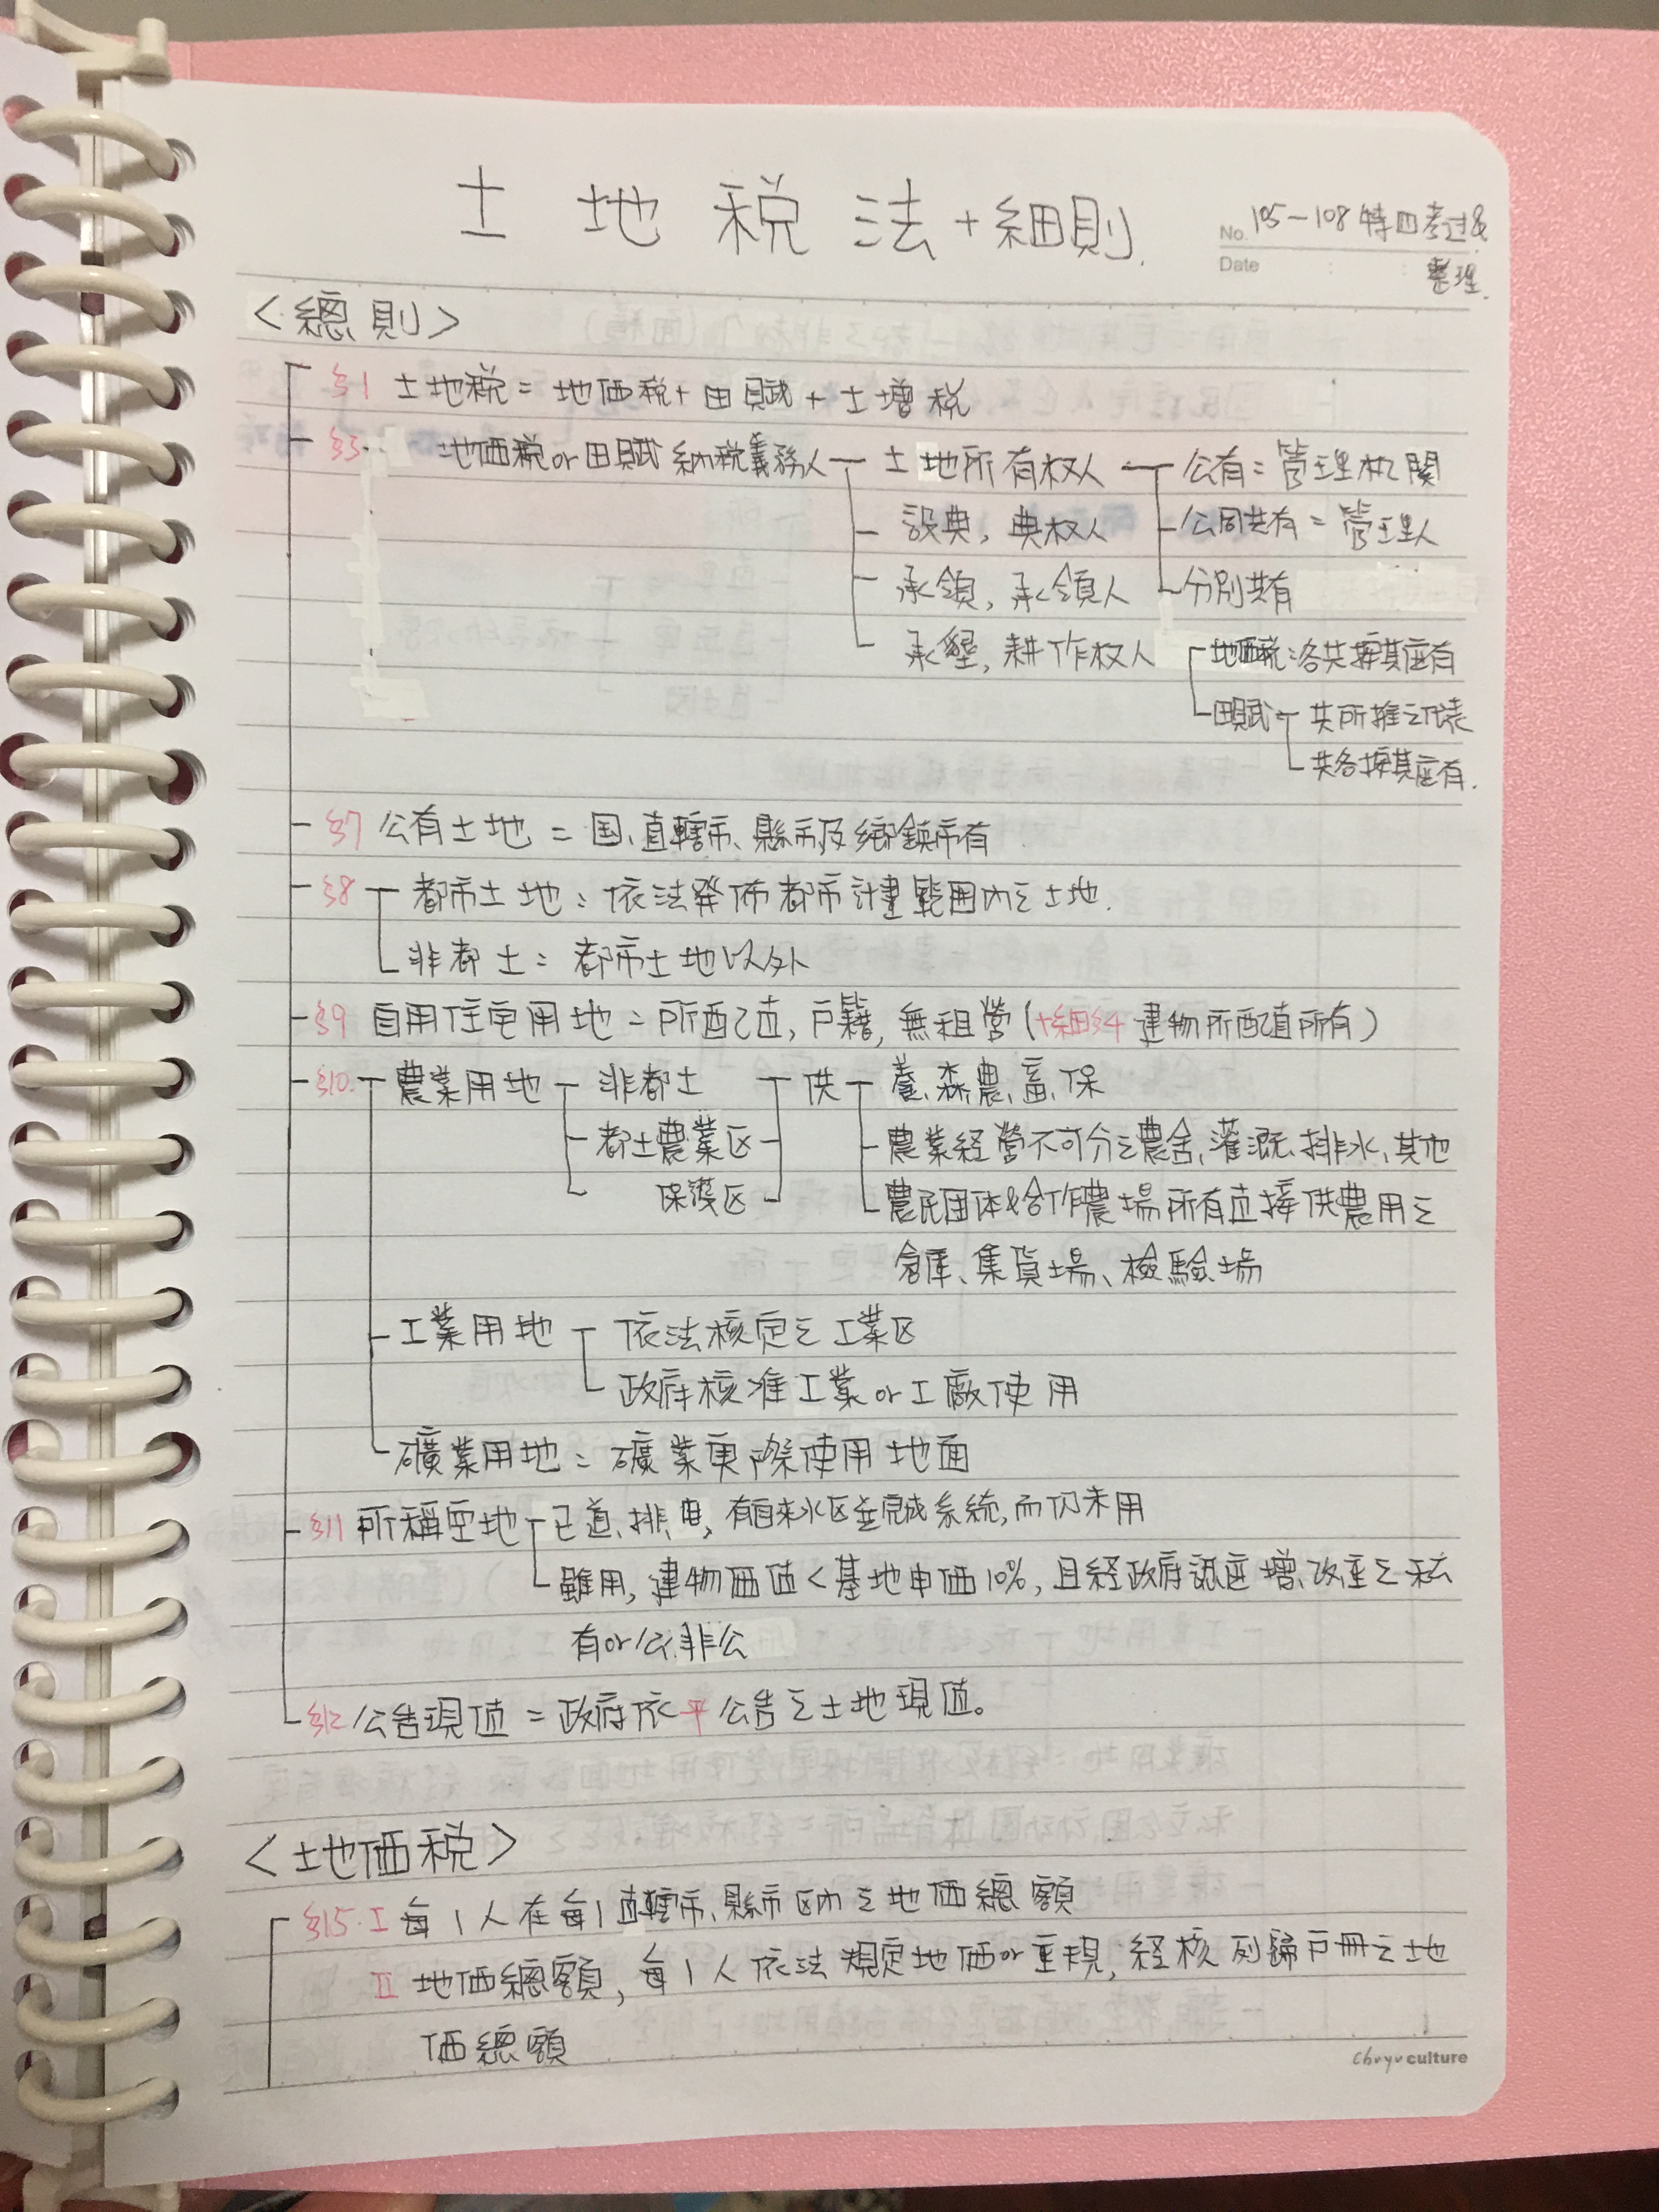 土地稅法+細則.
No. 105-108特四考过&
Date 整理.
<總則>
§1 土地稅=地価稅+田賦+土增稅
§3 地価稅or田賦納稅義務人 土地所有权人 公有=管理机関
設典,典权人 公同共有=管理人
承領,承領人 分別共有
承墾,耕作权人 地価稅:各共按其應有
田賦 共所推之代表
共各按其應有.
§7 公有土地=国、直轄市、縣市及鄉鎮市有
§8 都市土地:依法發佈都市計畫範囲內之土地.
非都土:都市土地以外
§9 自用住宅用地=所配直,戶籍,無租營(+細§4 建物所配直所有)
§10. 農業用地 非都土 供 養、森、農、畜、保
都土農業区 農業経営不可分之農舍、灌溉、排水、其他
保護区 農民団体&合作農場所有直接供農用之
倉庫、集貨場、檢驗場
工業用地 依法核定之工業区
政府核准工業or工廠使用
礦業用地:礦業実際使用地面
§11 所稱空地 已道、排、电,有自來水区並完成系統,而仍未用
雖用,建物価值<基地申価10%,且経政府認應增、改、重之私
有or公、非公
§12 公告現值=政府依平公告之土地現值。
<土地価稅>
§15.I 每1人在每1直轄市、縣市区內之地価總額
II 地価總額,每1人依法規定地価or重規,経核列歸戶冊之地
価總額
chuyu culture